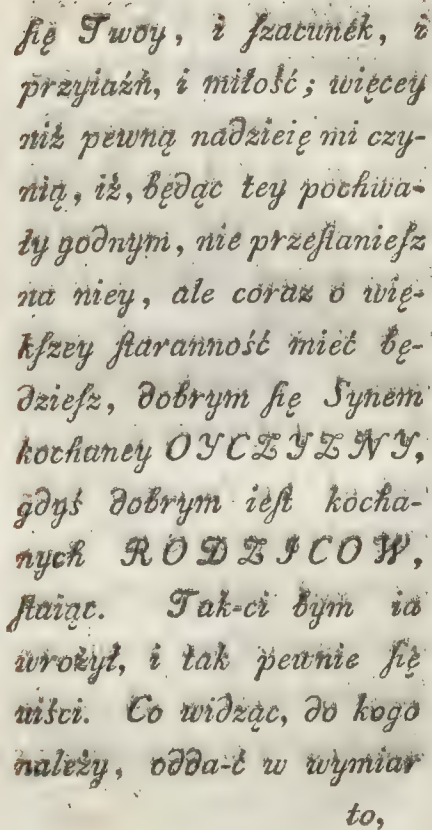 ſię Twoy, i ſzacunek, i
przyiaźń, i miłość; więcey
niż pewną nadzieię mi czy-
nią, iż, będąc tey pochwa-
ły godnym, nie przeſtanieſz
na niey, ale coraz o wię-
kſzey ſtaranność mieć bę-
dzieſz, dobrym ſię Synem
kochaney OYCZYZNY,
gdyś dobrym ieſt kocha-
nych RODZICOW,
ſtaiąc. Tak-ci bym ia
wrożył, i tak pewnie ſię
uiści. Co widząc, do kogo
należy, odda-ć w wymiar
to,